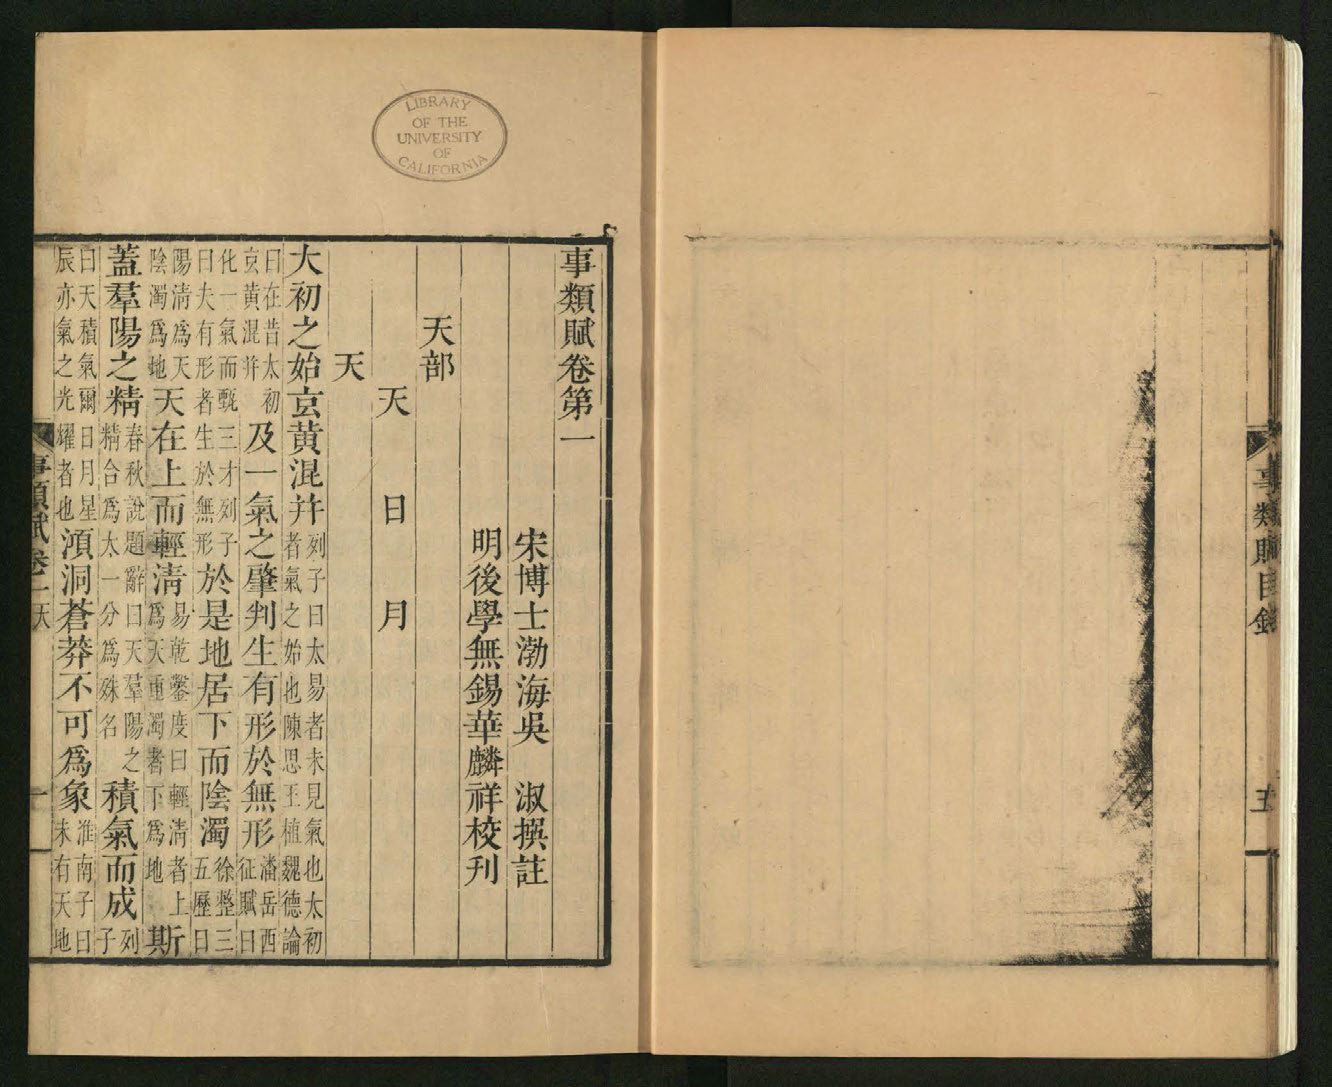 事類賦目錄
五
LIBRARY
OF THE
UNIVERSITY
OF
CALIFORNIA
事類賦卷第一
宋博士渤海吳　淑撰註
明後學無錫華麟祥校刊
天部
天　日　月
天
大初之始玄黃混并列子曰太易者未見氣也太初者氣之始也陳思王植魏德論
曰在昔太初玄黃混并及一氣之肇判生有形於無形潘岳西征賦曰
化一氣而甄三才列子曰夫有形者生於無形於是地居下而陰濁徐整三五歷曰
陽清爲天陰濁爲地天在上而輕清易乾鑿度曰輕清者上爲天重濁者下爲地斯
蓋羣陽之精春秋說題辭曰天羣陽之精合爲太一分爲殊名積氣而成列子
曰天積氣爾日月星辰亦氣之光耀者也澒洞蒼莽不可爲象淮南子曰未有天地
事類賦卷一　天
一